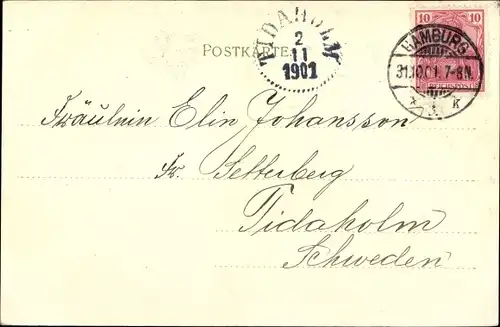 TIDAHOLM
2
11
1901
POSTKARTE
10 10
REICHSPOST
HAMBURG
31.10.01. 7-8N.
* 1. k
Fräulein Elin Johansson
Fr. Setterberg
Tidaholm
Schweden